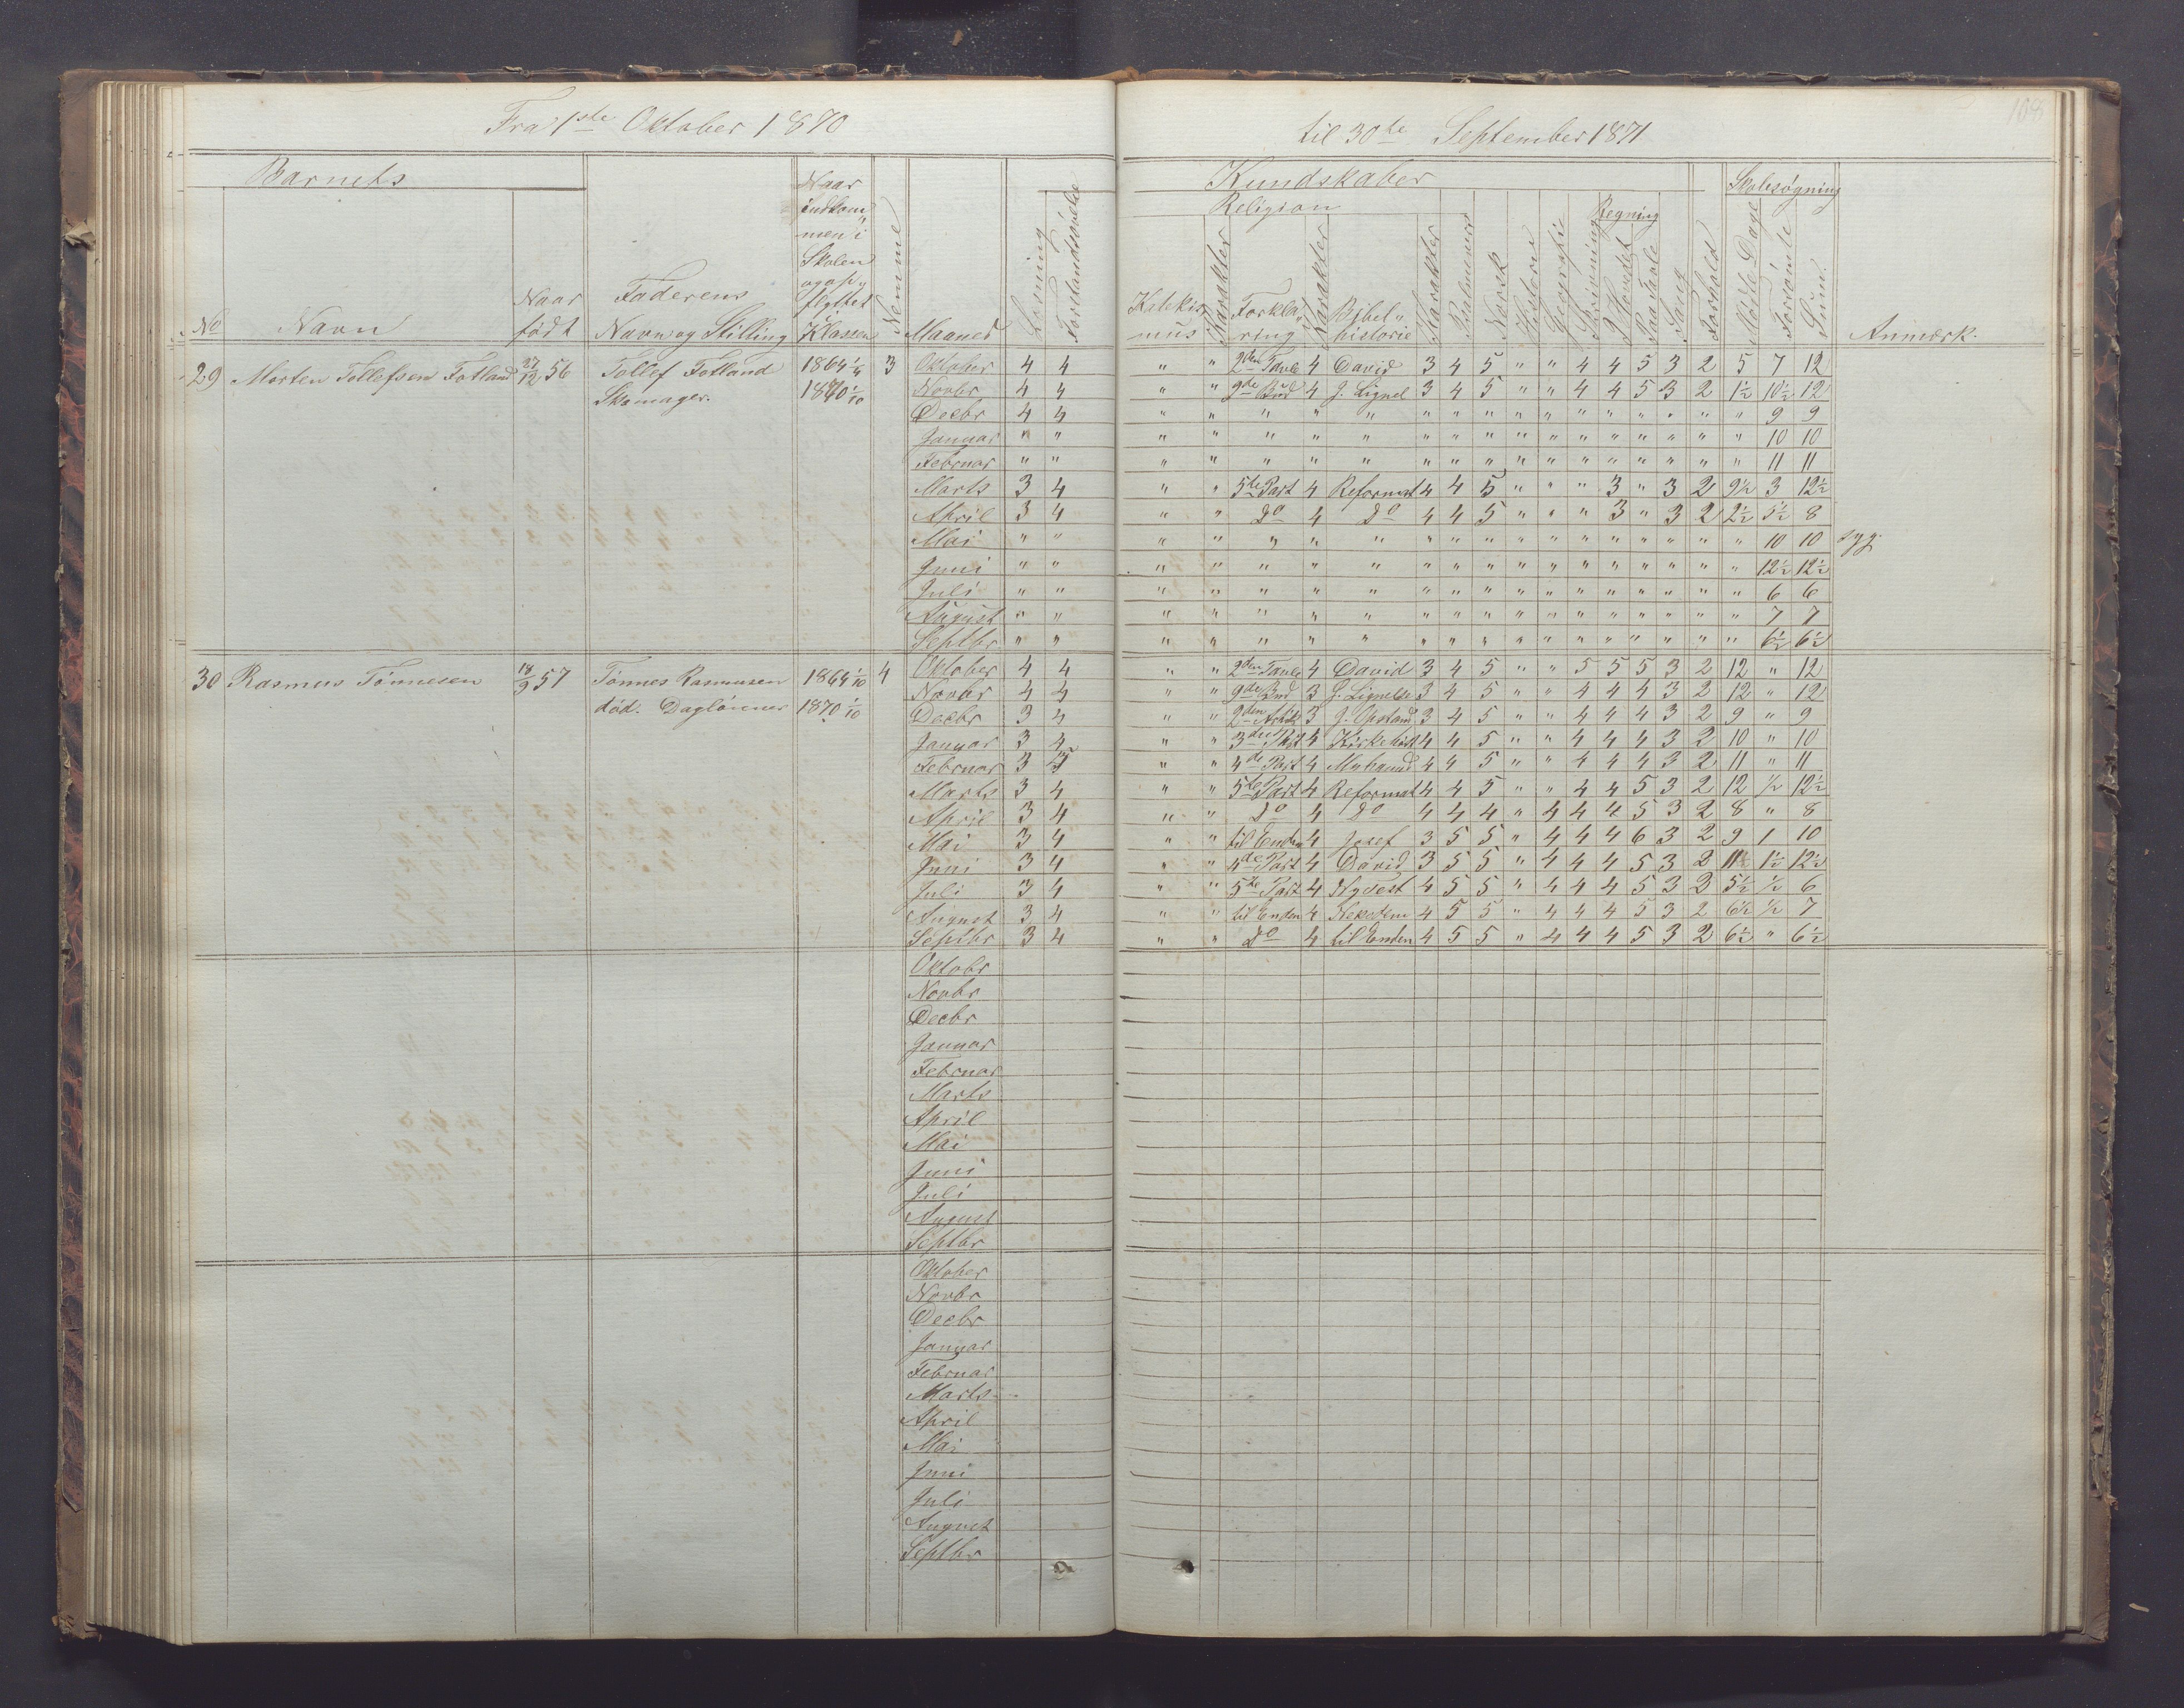 Fra 1ste Oktober 1870
til 30te September 1871
168
Barnets
Kundskaber
Skolesøgning
Religion
Regning
No
Navn
Naar født
Faderens Navn og Stilling
Naar indkommen i Skolen og opflyttet i Klassen
Nemme
Maaned
Læsning
Forstandsøvelse
Katekismus
Karakter
Forklaring
Karakter
Bibelhistorie
Karakter
Psalmevers
Norsk
Historie
Geografi
Skrivning
I Hovedet
Paa Tavle
Sang
Forhold
Mødte Dage
Forsømte
Sum
Anmærk.
29 Morten Tollefsen Fotland 27/12 56 Tollef Fotland 1864 1/4 3 Oktober 4 4 " " 2den Tavle 4 David 3 4 5 " " 4 4 5 3 2 5 7 12
Skomager. 1870 1/10 Novbr 4 4 " " 9de Bud 4 J. Lignel 3 4 5 " " 4 4 5 3 2 1½ 10½ 12
Decbr 4 4 " " " " " " " " " " " " " " " " 9 9
Januar " " " " " " " " " " " " " " " " " " 10 10
Februar " " " " " " " " " " " " " " " " " " 11 11
Marts 3 4 " " 5te Part 4 Reformat 4 4 5 " " " 3 " 3 2 9½ 3 12½
April 3 4 " " Do 4 Do 4 4 5 " " " 3 " 3 2 2½ 5½ 8
Mai " " " " " " " " " " " " " " " " " " 10 10 syg.
Juni " " " " " " " " " " " " " " " " " " 12½ 12½
Juli " " " " " " " " " " " " " " " " " " 6 6
August " " " " " " " " " " " " " " " " " " 7 7
Septbr " " " " " " " " " " " " " " " " " " 6½ 6½
30 Rasmus Tønnesen 18/9 57 Tønnes Rasmusen 1864 1/10 4 Oktober 4 4 " " 2den Tavle 4 David 3 4 5 " " 5 5 5 3 2 12 " 12
død. Dagløinner 1870 1/10 Novbr 4 4 " " 9de Bud 3 J. Lignelse 3 4 5 " " 4 4 4 3 2 12 " 12
Decbr 3 4 " " 2den Artik 3 J. Opstand 3 4 5 " " 4 4 4 3 2 9 " 9
Januar 3 4 " " 3die Part 4 Kirkehist 4 4 5 " " 4 4 4 3 2 10 " 10
Februar 3 " " 4de Part 4 4 4 5 " " 4 4 4 3 2 11 " 11
Marts 3 4 " " 5te Part 4 Reformat 4 4 5 " " 4 4 5 3 2 12 ½ 12½
April 3 4 " " Do 4 Do 4 4 4 " 4 4 4 5 3 2 8 " 8
Mai 3 4 " " til Enden 4 Josef 3 5 5 " 4 4 4 6 3 2 9 1 10
Juni 3 4 " " 4de Part 4 David 3 5 5 " 4 4 4 5 3 2 11 1½ 12½
Juli 3 4 " " 5te Part 4 Ny Test 4 5 5 " 4 4 4 5 3 2 5½ ½ 6
August 3 4 " " til Enden 4 4 5 5 " 4 4 4 5 3 2 6½ ½ 7
Septbr 3 4 " " Do 4 til Enden 4 5 5 " 4 4 4 5 3 2 6½ " 6½
Oktobr
Novbr
Decbr
Januar
Februar
Marts
April
Mai
Juni
Juli
August
Septbr
Oktober
Novbr
Decbr
Januar
Februar
Marts
April
Mai
Juni
Juli
August
Septbr